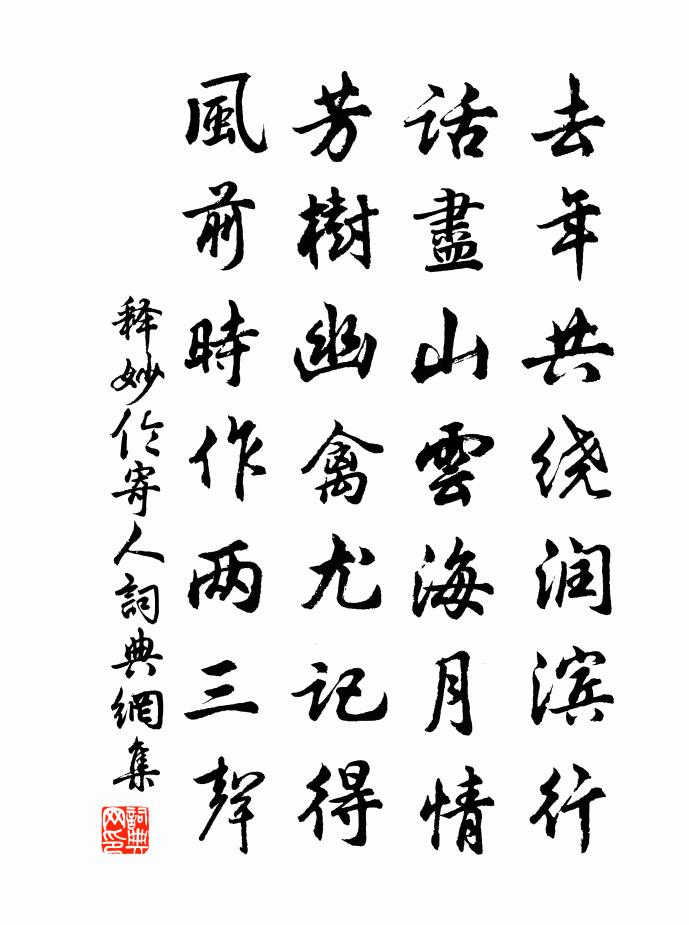 去年共绕润滨行
话盡山雲海月情
芳樹幽禽尤记得
風前時作两三聲
释妙伦寄人詞典網集
詞典网印